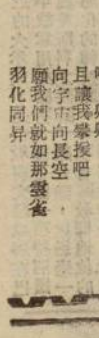 且讓我攀援吧
向宇宙向長空
願我們就如那雲雀
羽化同昇